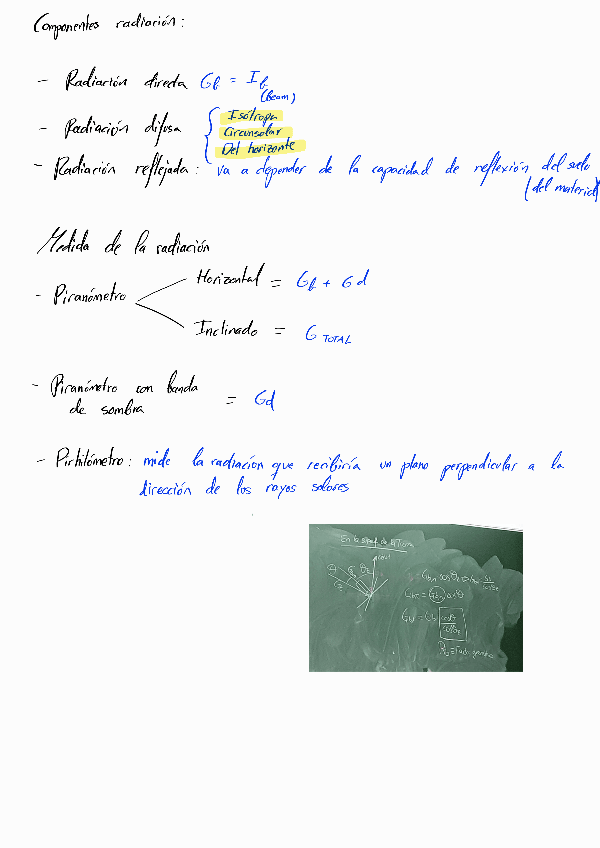 Componentes radiación:
- Radiación directa Gb = Ib
(Beam)
- Radiación difusa { Isótropa
Circunsolar
Del horizonte
- Radiación reflejada: va a depender de la capacidad de reflexión del suelo
(del material)
Medida de la radiación
- Piranómetro
Horizontal = Gb + Gd
Inclinado = G TOTAL
- Piranómetro con banda
de sombra = Gd
- Pirhilómetro: mide la radiación que recibiría un plano perpendicular a la
dirección de los rayos solares
En la superf. de la Tierra